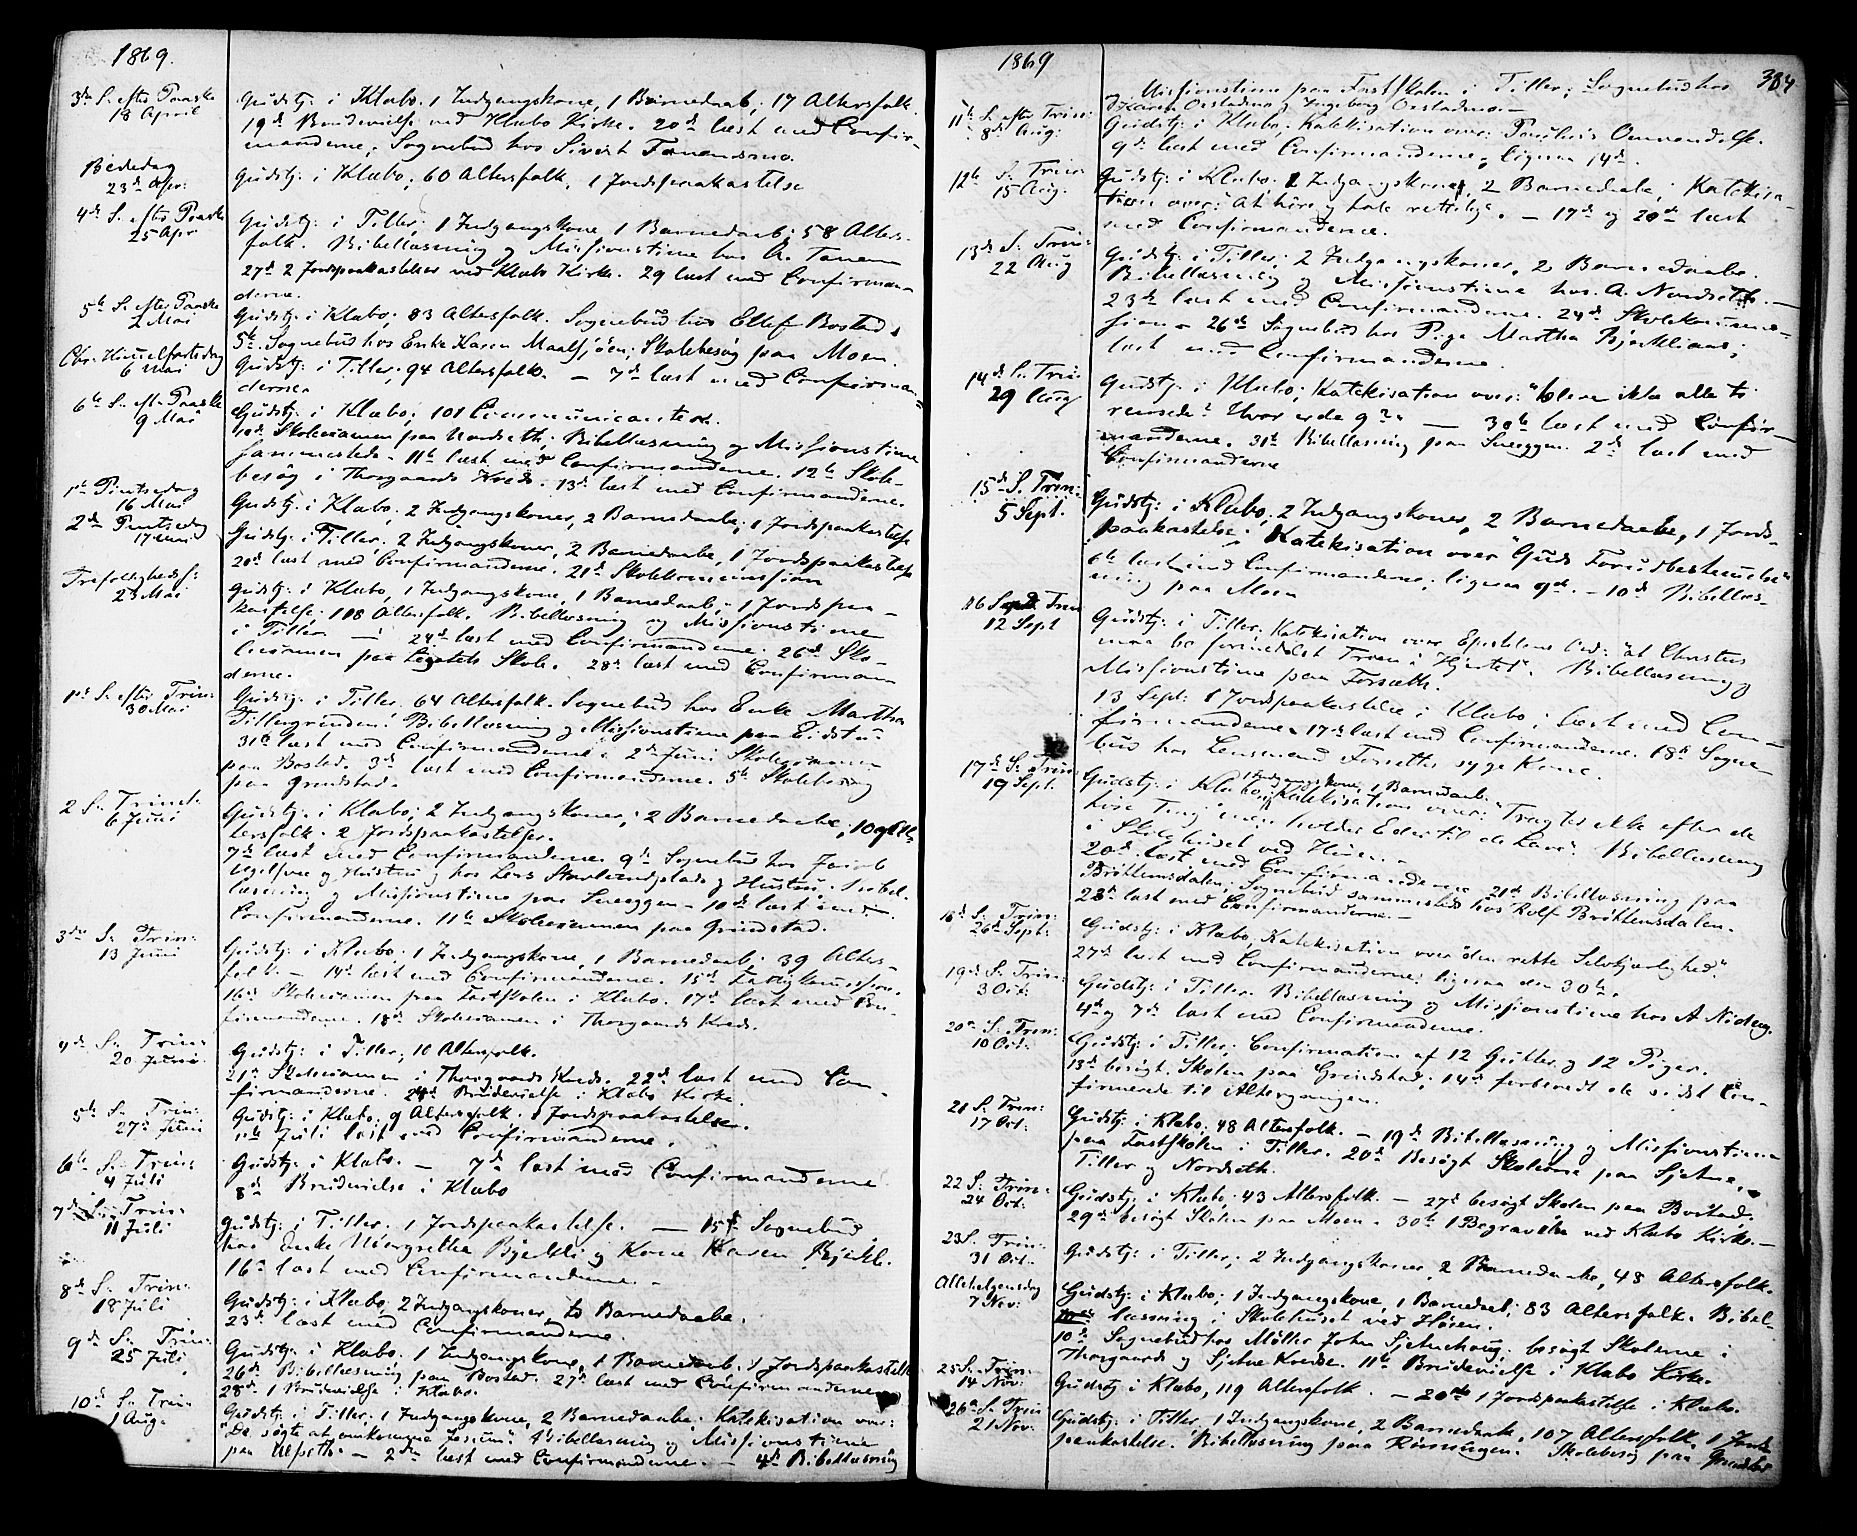 1869.
3die S. efter Paaske
18 April
Gudstj: i Klæbo. 1 Indgangskone, 1 Barnedaab; 17 Altersfolk.
19de Brudevielse ved Klæbo Kirke. 20de læst med Confir-
manderne; Sognebud hos Sivert
Bededag
23de Apr:
Gudstj: i Klæbo; 60 Altersfolk, 1 Jordspaakastelse
4de S. efter Paaske
25 Apr
Gudstj: i Tiller; 1 Indgangskone, 1 Barnedaab; 58 Alters-
folk. Bibellæsning og Missionstime hos A. Tanem
27de 2 Jordspaakastelser ved Klæbo Kirke. 29 læst med Confirman-
derne.
5te S. efter Paaske
2 Mai
Gudstj: i Klæbo; 83 Altersfolk. Sognebud hos Ellef Bostad.
5te Sognebud hos Enke Karen Maalsjøen; Skolebesøg paa Moen.
Chr. Himmelfartsdag
6 Mai
Gudstj: i Tiller; 94 Altersfolk. — 7de læst med Confirman-
derne.
6te S. eft. Paaske
9 Mai
Gudstj: i Klæbo; 101 Communicanter.
10de Skoleexamen paa Nordseth; Bibellæsning og Missionstime
sammesteds. 11te læst med Confirmanderne. 12te Skole-
besøg i Thorgaards Kreds. 13de læst med Confirmanderne.
1ste Pintsedag
16 Mai
Gudstj: i Klæbo; 2 Indgangskoner, 2 Barnedaabe; 1 Jordspaakastelse
2den Pintsedag
17 Mai
Gudstj: i Tiller; 2 Indgangskoner, 2 Barnedaabe, 1 Jordspaakastelse
20de læst med Confirmanderne. 21de Skolekommission
Trefoldighedsf:
23 Mai
Gudstj: i Klæbo, 1 Indgangskone, 1 Barnedaab; 1 Jordspaa-
kastelse; 108 Altersfolk. Bibellæsning og Missionstime
i Tiller — 24de læst med Confirmanderne. 26de Sko-
leexamen paa Legatets Skole. 28de læst med Confirman
derne.
1ste S. efter Trin:
30 Mai
Gudstj: i Tiller. 64 Altersfolk. Sognebud hos Enke Martha
Tillergrinden. Bibellæsning og Missionstime paa Eidstu.
31te læst med Confirmanderne. 2den Juni Skoleexamen
paa Bostad. 3de læst med Confirmanderne. 5te Skolebesøg
paa Grindstad.
2 S. Trinit:
6 Juni
Gudstj: i Klæbo; 2 Indgangskoner; 2 Barnedaabe; 109 Al-
tersfolk. 2 Jordspaakastelser.
7de læst med Confirmanderne. 9de Sognebud hos Jacob
og Hustru og hos Lars og Hustru. Bibel-
læsning og Missionstime paa Sneeggen — 10de læst med
Confirmanderne. 11te Skoleexamen paa Grindstad.
3die S. Trin:
13 Juni
Gudstj: i Klæbo. 1 Indgangskone, 1 Barnedaab; 39 Alters-
folk. — 14de læst med Confirmanderne. 15de Fattigkommission.
16de Skoleexamen paa Fastskolen i Klæbo. 17de læst med Con-
firmanderne. 18de Skoleexamen i Thorgaards Kreds.
4de S. Trin:
20 Juni
Gudstj: i Tiller; 10 Altersfolk.
21de Skoleexamen i Thorgaards Kreds. 22de læst med Con-
firmanderne. 24de Brudevielse i Klæbo Kirke.
5te S. Trin:
27de Juni
Gudstj: i Klæbo. 9 Altersfolk. 1 Jordspaakastelse.
1ste Juli læst med Confirmanderne.
6te S. Trin:
4 Juli
Gudstj: i Klæbo. — 7de læst med Confirmanderne
8de Brudevielse i Klæbo
7de S. Trin:
11 Juli
Gudstj: i Tiller. 1 Jordspaakastelse. — 15de Sognebud
hos Enke Margretha og Kone Karen
16de læst med Confirmanderne.
8de S. Trin:
18 Juli
Gudstj: i Klæbo, 2 Indgangskoner, Barnedaabe.
23de læst med Confirmanderne.
9de S. Trin:
25 Juli
Gudstj: i Klæbo. 1 Indgangskone, 1 Barnedaab. 1 Jordspaakastelse
26de Bibellæsning paa Bostad. 27de læst med Confirmanderne
28de 1 Brudevielse i Klæbo.
10de S. Trin:
1 Aug.
Gudstj: i Tiller; 1 Indgangskone, 2 Barnedaabe. Katekisation over:
"De søgte at omkomme Jesum". Bibellæsning og Missionstime
paa — 2den læst med Confirmanderne. — 4de Bibellæsning
1869
384
og Missionstime paa Fastskolen i Tiller; Sognebud hos
Karen Orstadmo og Ingeborg Orstadmo. —
11te S. efter Trin:
8de Aug:
Gudstj: i Klæbo; Katekisation over: Pauli Omvendelse.
9de læst med Confirmanderne; ligesaa 14de.
12te S. Trin
15 Aug.
Gudstj: i Klæbo. 2 Indgangskoner, 2 Barnedaabe; Katekisa-
tion over: At høre og tale rettelig. — 17de og 20de læst
med Confirmanderne.
13de S. Trin:
22 Aug
Gudstj: i Tiller; 2 Indgangskoner, 2 Barnedaabe.
Bibellæsning og Missionstime hos A. Nordseth. —
23de læst med Confirmanderne. 24de Skolekommis-
sion — 26de Sognebud hos Pige Martha Bjerkliaas;
læst med Confirmanderne.
14de S. Trin:
29 Aug
Gudstj: i Klæbo; Katekisation over: "bleve ikke alle ti
rensede? Hvor er de 9?" — 30te læst med Confir-
manderne. 31te Bibellæsning paa Sneeggen. 2de læst med
Confirmanderne
15de S. Trin:
5 Sept.
Gudstj: i Klæbo; 2 Indgangskoner, 2 Barnedaabe, 1 Jords-
paakastelse. Katekisation over "Guds Forudbestemmelse"
6te læst med Confirmanderne; ligesaa 9de. — 10de Bibellæs-
ning paa Moen
16 S. Trin
12 Sept
Gudstj: i Tiller; Katekisation over Epistelens Ord: "at Christus
maa bo formedelst Troen i Hjertet". Bibellæsning og
Missionstime paa Forsæth.
13 Sept: 1 Jordspaakastelse i Klæbo; læst med Con-
firmanderne. 17de læst med Confirmanderne. 18de Sogne-
bud hos Lensmand Forseths syge Kone.
17de S. Trin
19 Sept.
Gudstj: i Klæbo; 1 Indgangskone, 1 Barnedaab. Katekisation over: Tragter ikke efter de
høie Ting, men holder Eder til de Lave". Bibellæsning
i Skolehuset ved
20de læst med Confirmanderne 21de Bibellæsning paa
Brøttemsdalen; Sognebud sammesteds hos Rolf Brøttemsdalen.
23de læst med Confirmanderne. —
18de S. Trin:
26de Sept:
Gudstj: i Klæbo, Katekisation over "den rette Selvkjærlighed".
27de læst med Confirmanderne; ligesaa den 30te.
19de S. Trin
3 Oct:
Gudstj: i Tiller. Bibellæsning og Missionstime hos A Nideng.
4de og 7de læst med Confirmanderne.
20de S. Trin:
10 Oct:
Gudstj: i Tiller; Confirmation af 12 Gutter og 12 Piger.
13de besøgt Skolen paa Grindstad; 14de forberedt de sidst Con-
firmerede til Altergangen.
21 S. Trin:
17 Oct:
Gudstj: i Klæbo; 48 Altersfolk. — 19de Bibellæsning og Missionstime
paa Fastskolen i Tiller. 20de Besøgt Skolerne paa Sjetne,
Tiller og Nordseth.
22 S. Trin:
24 Oct:
Gudstj: i Klæbo; 43 Altersfolk. — 27de besøgt Skolen paa Bostad;
29de besøgt Skolen paa Moen. 30te 1 Begravelse ved Klæbo Kirke. —
23 S. Trin:
31 Oct.
Gudstj: i Tiller; 2 Indgangskoner, 2 Barnedaabe, 48 Altersfolk.
Allehelgensdag
7 Nov:
Gudstj: i Klæbo; 1 Indgangskone, 1 Barnedaab; 83 Altersfolk. Bibel-
læsning i Skolehuset ved
10de Sognebud hos Møller John Sjetnehaug. besøgt Skolerne i
Thorgaards og Sjetne Kredse. 11te Brudevielse i Klæbo Kirke.
25 S. Trin
14 Nov.
Gudstj i Klæbo, 119 Altersfolk. — 20de 1 Jordspaakastelse i Klæbo.
26de S. Trin
21 Nov.
Gudstj: i Tiller, 1 Indgangskone, 2 Barnedaab, 107 Altersfolk, 1 Jord-
paakastelse. Bibellæsning paa Skolebesøg paa Grindstad